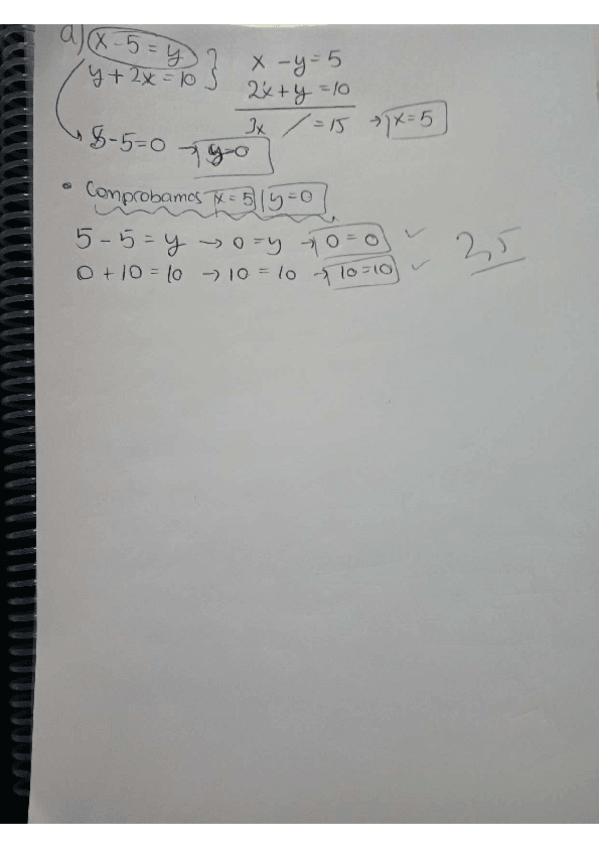 a) x - 5 = y
y + 2x = 10 }
x - y = 5
2x + y = 10
3x / = 15 → x = 5
5 - 5 = 0 → y = 0
• Comprobamos x = 5 / y = 0
5 - 5 = y → 0 = y → 0 = 0 ✓
0 + 10 = 10 → 10 = 10 → 10 = 10 ✓
2,5